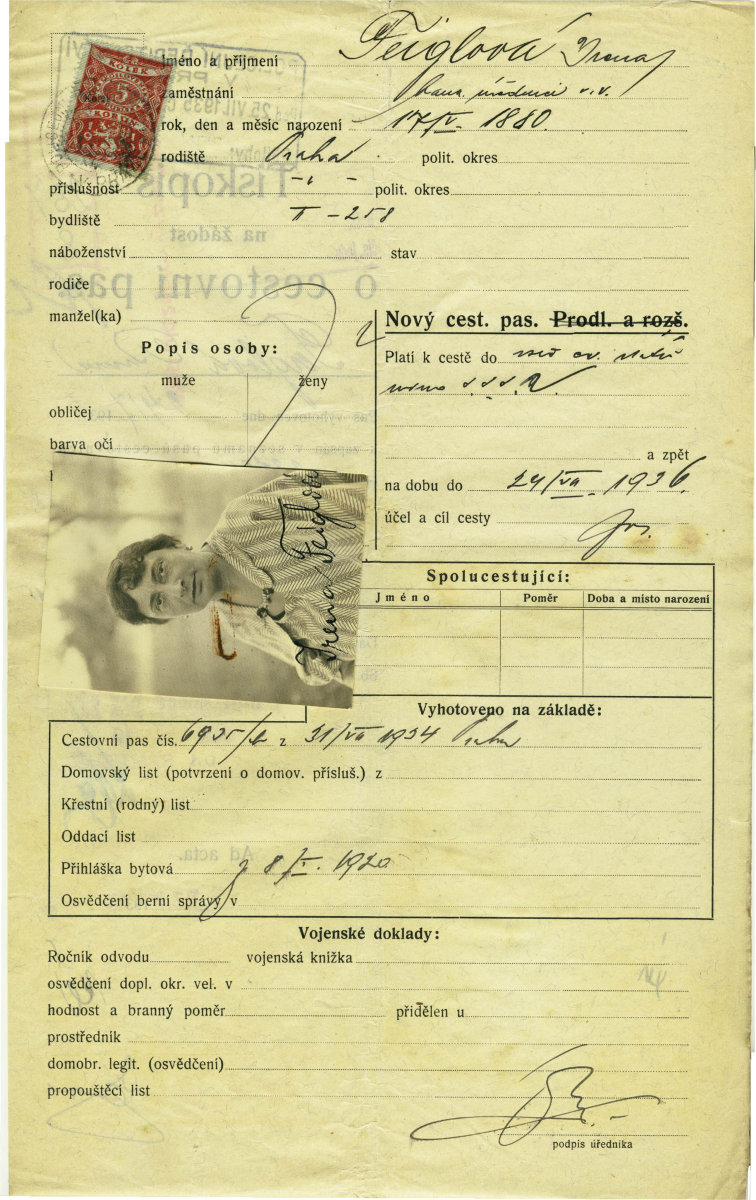 Jméno a příjmení Feiglová Irena
zaměstnání v.v.
rok, den a měsíc narození 17/IV. 1880.
rodiště Praha polit. okres
příslušnost -"- polit. okres
bydliště II - 258
náboženství stav
rodiče
manžel(ka)
Popis osoby:
muže ženy
obličej
barva očí
Irena Feiglová
Nový cest. pas. Prodl. a rozš.
Platí k cestě do
mimo S.S.S.R.
a zpět
na dobu do 24/VII. 1936.
účel a cíl cesty
Spolucestující:
Jméno Poměr Doba a místo narození
Vyhotoveno na základě:
Cestovní pas čís. z 31/VII 1934 Praha
Domovský list (potvrzení o domov. přísluš.) z
Křestní (rodný) list
Oddací list
Přihláška bytová z 8/X. 1920
Osvědčení berní správy v
Vojenské doklady:
Ročník odvodu vojenská knížka
osvědčení dopl. okr. vel. v
hodnost a branný poměr přidělen u
prostředník
domobr. legit. (osvědčení)
propouštěcí list
podpis úředníka
KOLEK
5